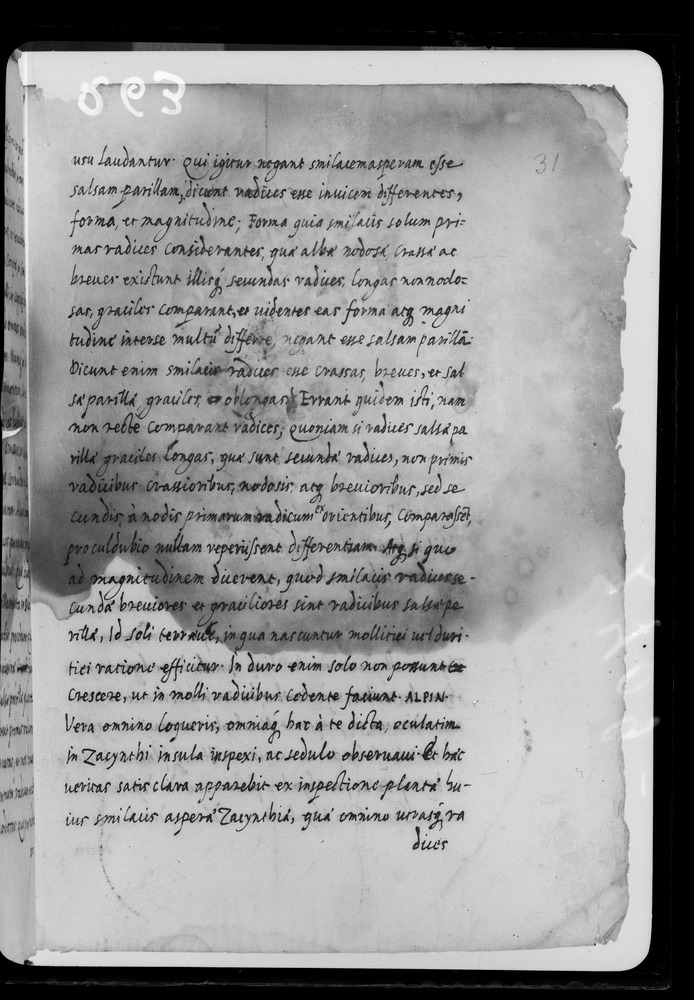 893
31
usu laudantur. Qui igitur negant smilacem asperam esse
salsam parillam, dicunt radices esse invicem differentes,
forma, et magnitudine; Forma quia smilacis solum pri=
mas radices considerantes, quae albae nodosae, crassae ac
breues existunt illisq; secundas radices, longas non nodo=
sas, graciles comparant, et uidentes eas forma atq; magni
tudine interse multū differre, negant esse salsam parillā.
Dicunt enim smilacis radices esse crassas, breues, et sal
sae parillae, graciles, et oblongas. Errant quidem isti, nam
non recte comparant radices; quoniam si radices salsae pa
rillae graciles longas, quae sunt secundae radices, non primis
radicibus crassioribus, nodosis, atq; brevioribus, sed se
cundis, à nodis primarum radicum orientibus, comparassēt,
proculdubio nullam reperiissent differentiam. Atq; si quis
ad magnitudinem dicerent, quod smilacis radices se-
cundae breuiores et graciliores sint radicibus salsae pa
rillae, Id soli terraeue, in qua nascuntur mollitiei uel duri-
tiei ratione efficitur. In duro enim solo non possunt
crescere, ut in molli radicibus cedente faciunt. ALPIN.
Vera omnino loqueris, omniaq; haec à te dicta, oculatim
in Zacynthi insula inspexi, ac sedulo obseruaui. Et haec
ueritas satis clara apparebit ex inspectione plantae hu-
ius smilacis asperae Zacynthiae, quae omnino utrasq; ra
dices